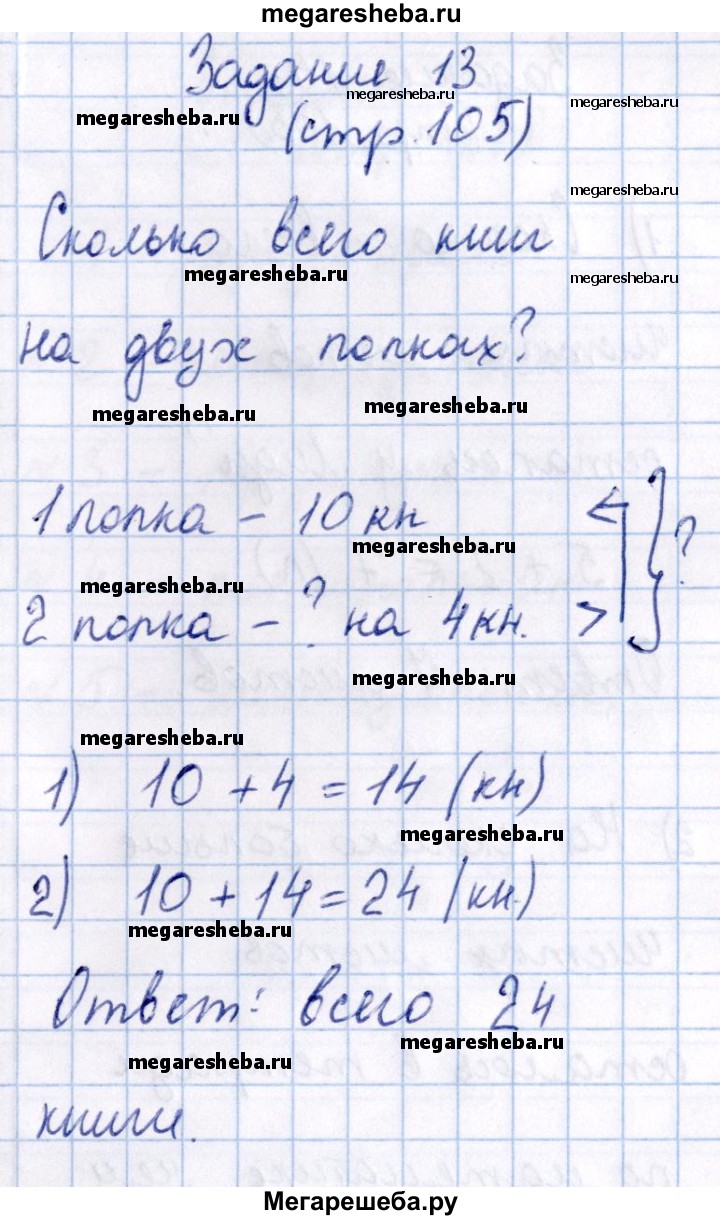 megaresheba.ru
Задание 13
megaresheba.ru
megaresheba.ru
megaresheba.ru
(стр. 105)
megaresheba.ru
Сколько всего книг
megaresheba.ru
megaresheba.ru
на двух полках?
megaresheba.ru
megaresheba.ru
1 полка – 10 кн < } ?
megaresheba.ru
megaresheba.ru
2 полка – ? на 4 кн. >
megaresheba.ru
megaresheba.ru
1) 10 + 4 = 14 (кн)
megaresheba.ru
2) 10 + 14 = 24 (кн.)
megaresheba.ru
Ответ: всего 24
megaresheba.ru
megaresheba.ru
книги.
Мегарешеба.ру